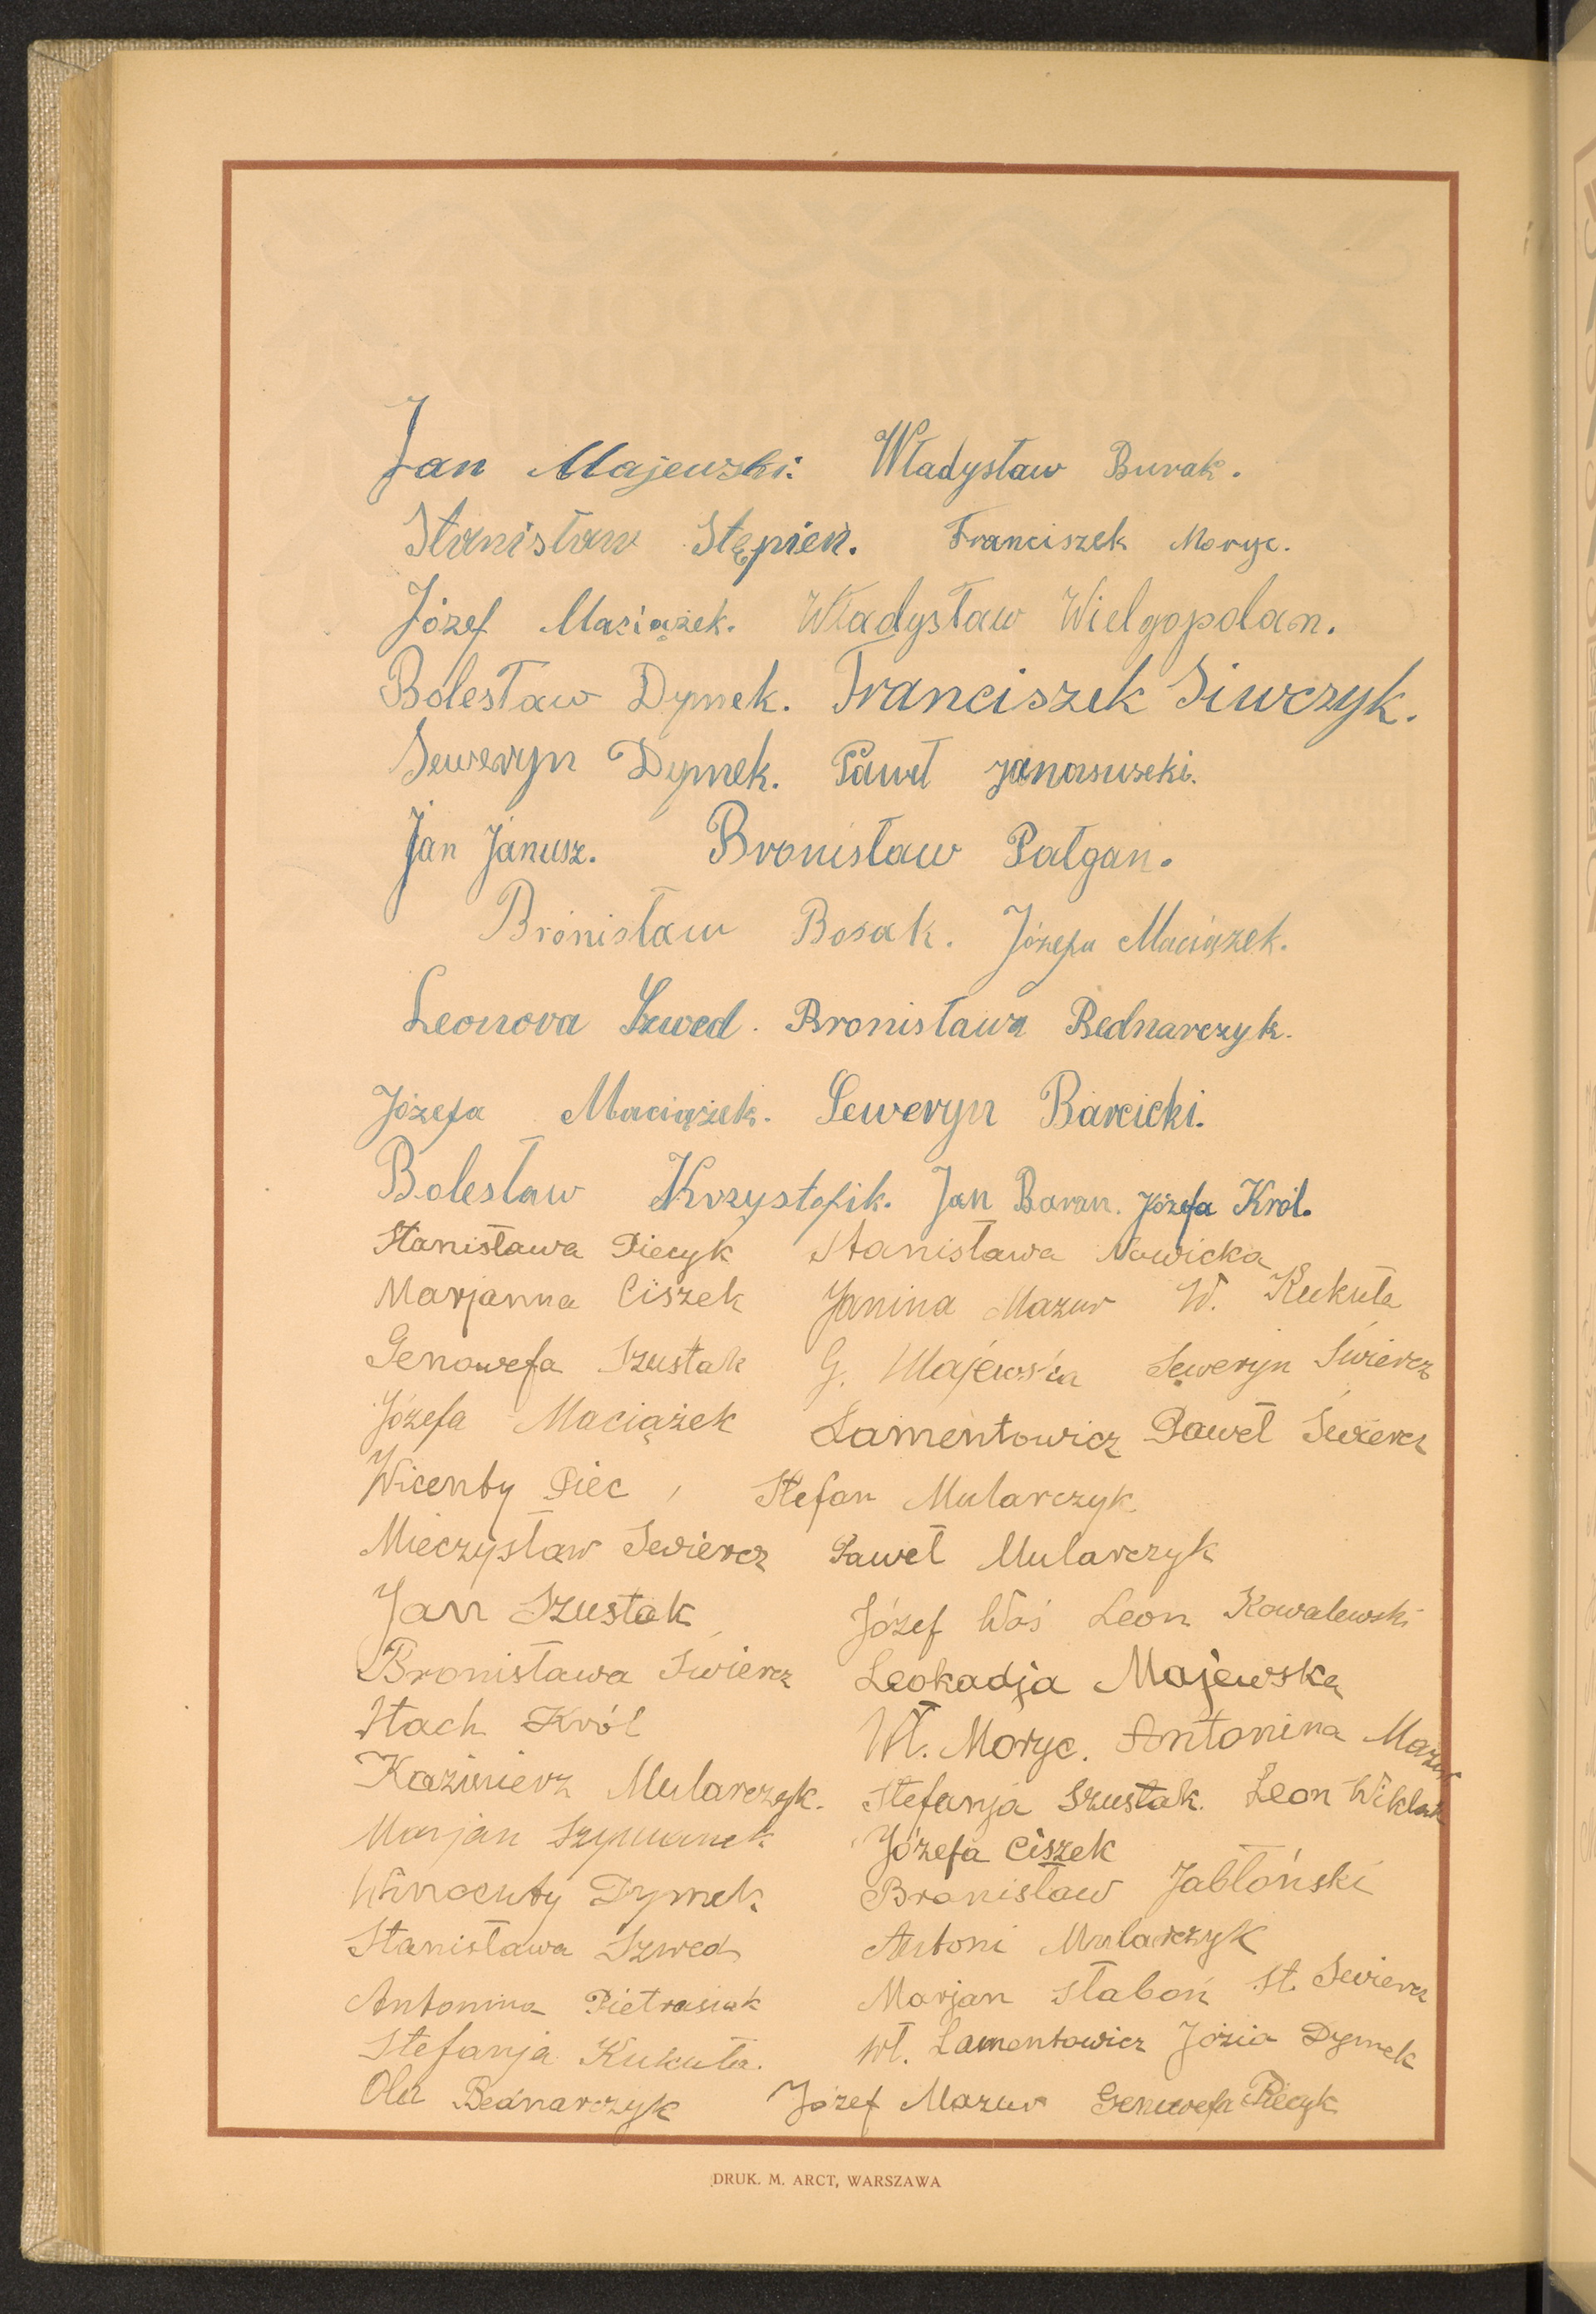 Jan Majewski. Władysław Burak.
Stanisław Stępień. Franciszek Moryc.
Józef Maciążek. Władysław Wielgopolan.
Bolesław Dymek. Franciszek Siwczyk.
Seweryn Dymek. Paweł Janaszewski.
Jan Janusz. Bronisław Pałgan.
Bronisław Bosak. Józefa Maciążek.
Leonora Szwed. Bronisława Bednarczyk.
Józefa Maciążek. Seweryn Barcicki.
Bolesław Krzystofik. Jan Baran. Józefa Król.
Stanisława Piecyk Stanisława Nowicka
Marjanna Ciszek Janina Mazur W. Kukuła
Genowefa Szustak G. Majewska Seweryn Świercz
Józefa Maciążek Lamentowicz Paweł Świercz
Wicenty Piec, Stefan Mularczyk.
Mieczysław Świercz Paweł Mularczyk
Jan Szustak Józef Woś Leon Kowalewski
Bronisława Świercz Leokadja Majewska
Stach Król Wł. Moryc. Antonina Mazur
Kazimierz Mularczyk. Stefanja Szustak. Leon Wiklak
Marjan Szymanek Józefa Ciszek
Winocenty Dymek Bronisław Jabłoński
Stanisława Szwed Antoni Mularczyk
Antonina Pietrasiak Marjan Słaboń St. Świercz
Stefanja Kukuła. Wł. Lamentowicz Józia Dymek
Ola Bednarczyk Józef Mazur Genowefa Piecyk
DRUK. M. ARCT, WARSZAWA